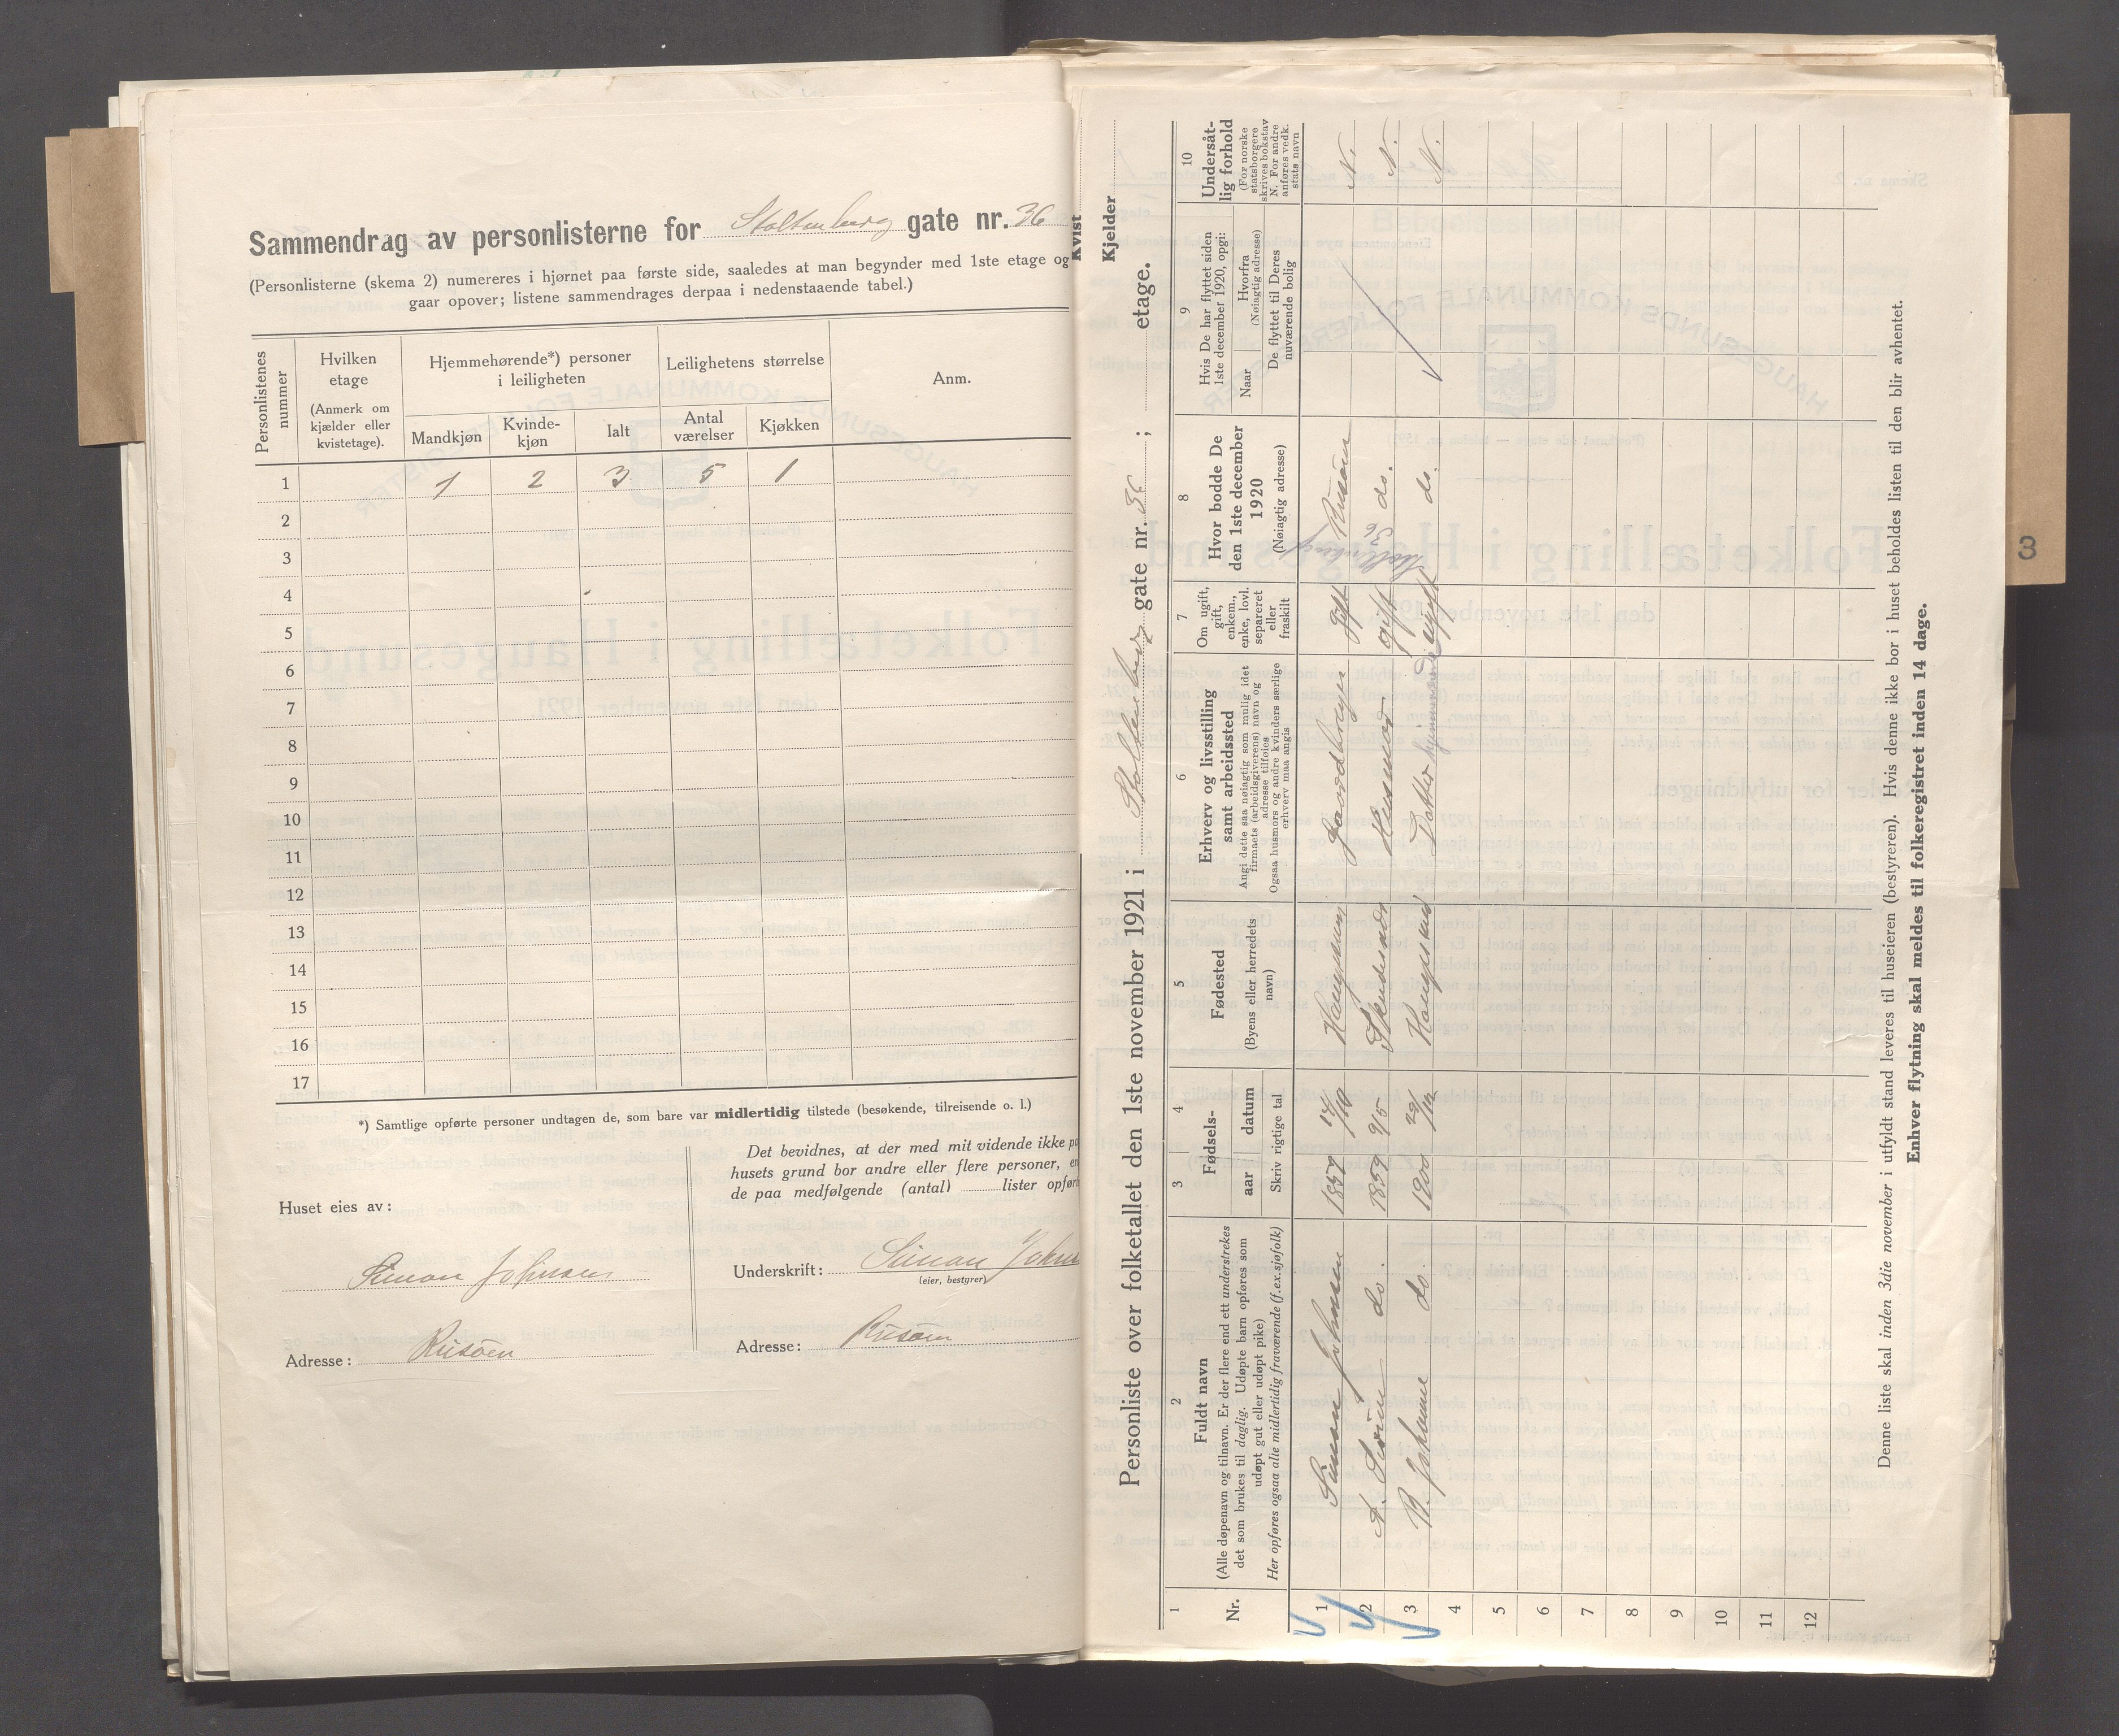 Sammendrag av personlisterne for Stoltenberg gate nr. 36
(Personlisterne (skema 2) numereres i hjørnet paa første side, saaledes at man begynder med 1ste etage og
gaar opover; listene sammendrages derpaa i nedenstaaende tabel.)
Personlistenes nummer
Hvilken etage
(Anmerk om kjælder eller kvistetage).
Hjemmehørende*) personer i leiligheten
Mandkjøn
Kvinde-kjøn
Ialt
Leilighetens størrelse
Antal værelser
Kjøkken
Anm.
1 1 2 3 5 1
2
3
4
5
6
7
8
9
10
11
12
13
14
15
16
17
*) Samtlige opførte personer undtagen de, som bare var midlertidig tilstede (besøkende, tilreisende o. l.)
Huset eies av:
Simon Johnsen
Adresse: Risøen
Det bevidnes, at der med mit vidende ikke pa
husets grund bor andre eller flere personer, en
de paa medfølgende (antal) lister opfør
Underskrift: Simon Johns
(eier, bestyrer)
Adresse: Risøen
Kvist
Kjelder
Personliste over folketallet den 1ste november 1921 i Stoltenberg gate nr. 36; etage.
1
Nr.
2
Fuldt navn
(Alle døpenavn og tilnavn. Er der flere end ett understrekes
det som brukes til daglig. Udøpte barn opføres som
udøpt gut eller udøpt pike)
Her opføres ogsaa alle midlertidig fraværende (f.ex.sjøfolk)
3
4
Fødsels-
aar
datum
Skriv rigtige tal
5
Fødested
(Byens eller herredets navn)
6
Erhverv og livsstilling
samt arbeidssted
Angi dette saa nøiagtig som mulig idet
firmaets (arbeidsgiverens) navn og
adresse tilføies
Ogsaa husmors og andre kvinders særlige
erhverv maa angis
7
Om ugift,
gift,
enkem.,
enke, lovl.
separeret
eller
fraskilt
8
Hvor bodde De
den 1ste december
1920
(Nøiagtig adresse)
9
Hvis De har flyttet siden
1ste december 1920, opgi:
Naar
Hvorfra
(Nøiagtig adresse)
De flyttet til Deres
nuværende bolig
10
Undersåt-
lig forhold
(For norske
statsborgere
skrives bokstav
N. For andre
anføres vedk.
stats navn
1 Simon Johnsen 1857 Haugesund gift Risøen N.
Stoltenberg 36
2 A. do. 1859 9/5 Skudesnæs Husmod gift do. N.
3 B. Johanne do. 1900 29/12 Haugesund Datter hjemmeværende ugift do. N.
4
5
6
7
8
9
10
11
12
Denne liste skal inden 3die november i utfyldt stand leveres til huseieren (bestyreren). Hvis denne ikke bor i huset beholdes listen til den blir avhentet.
Enhver flytning skal meldes til folkeregistret inden 14 dage.
3